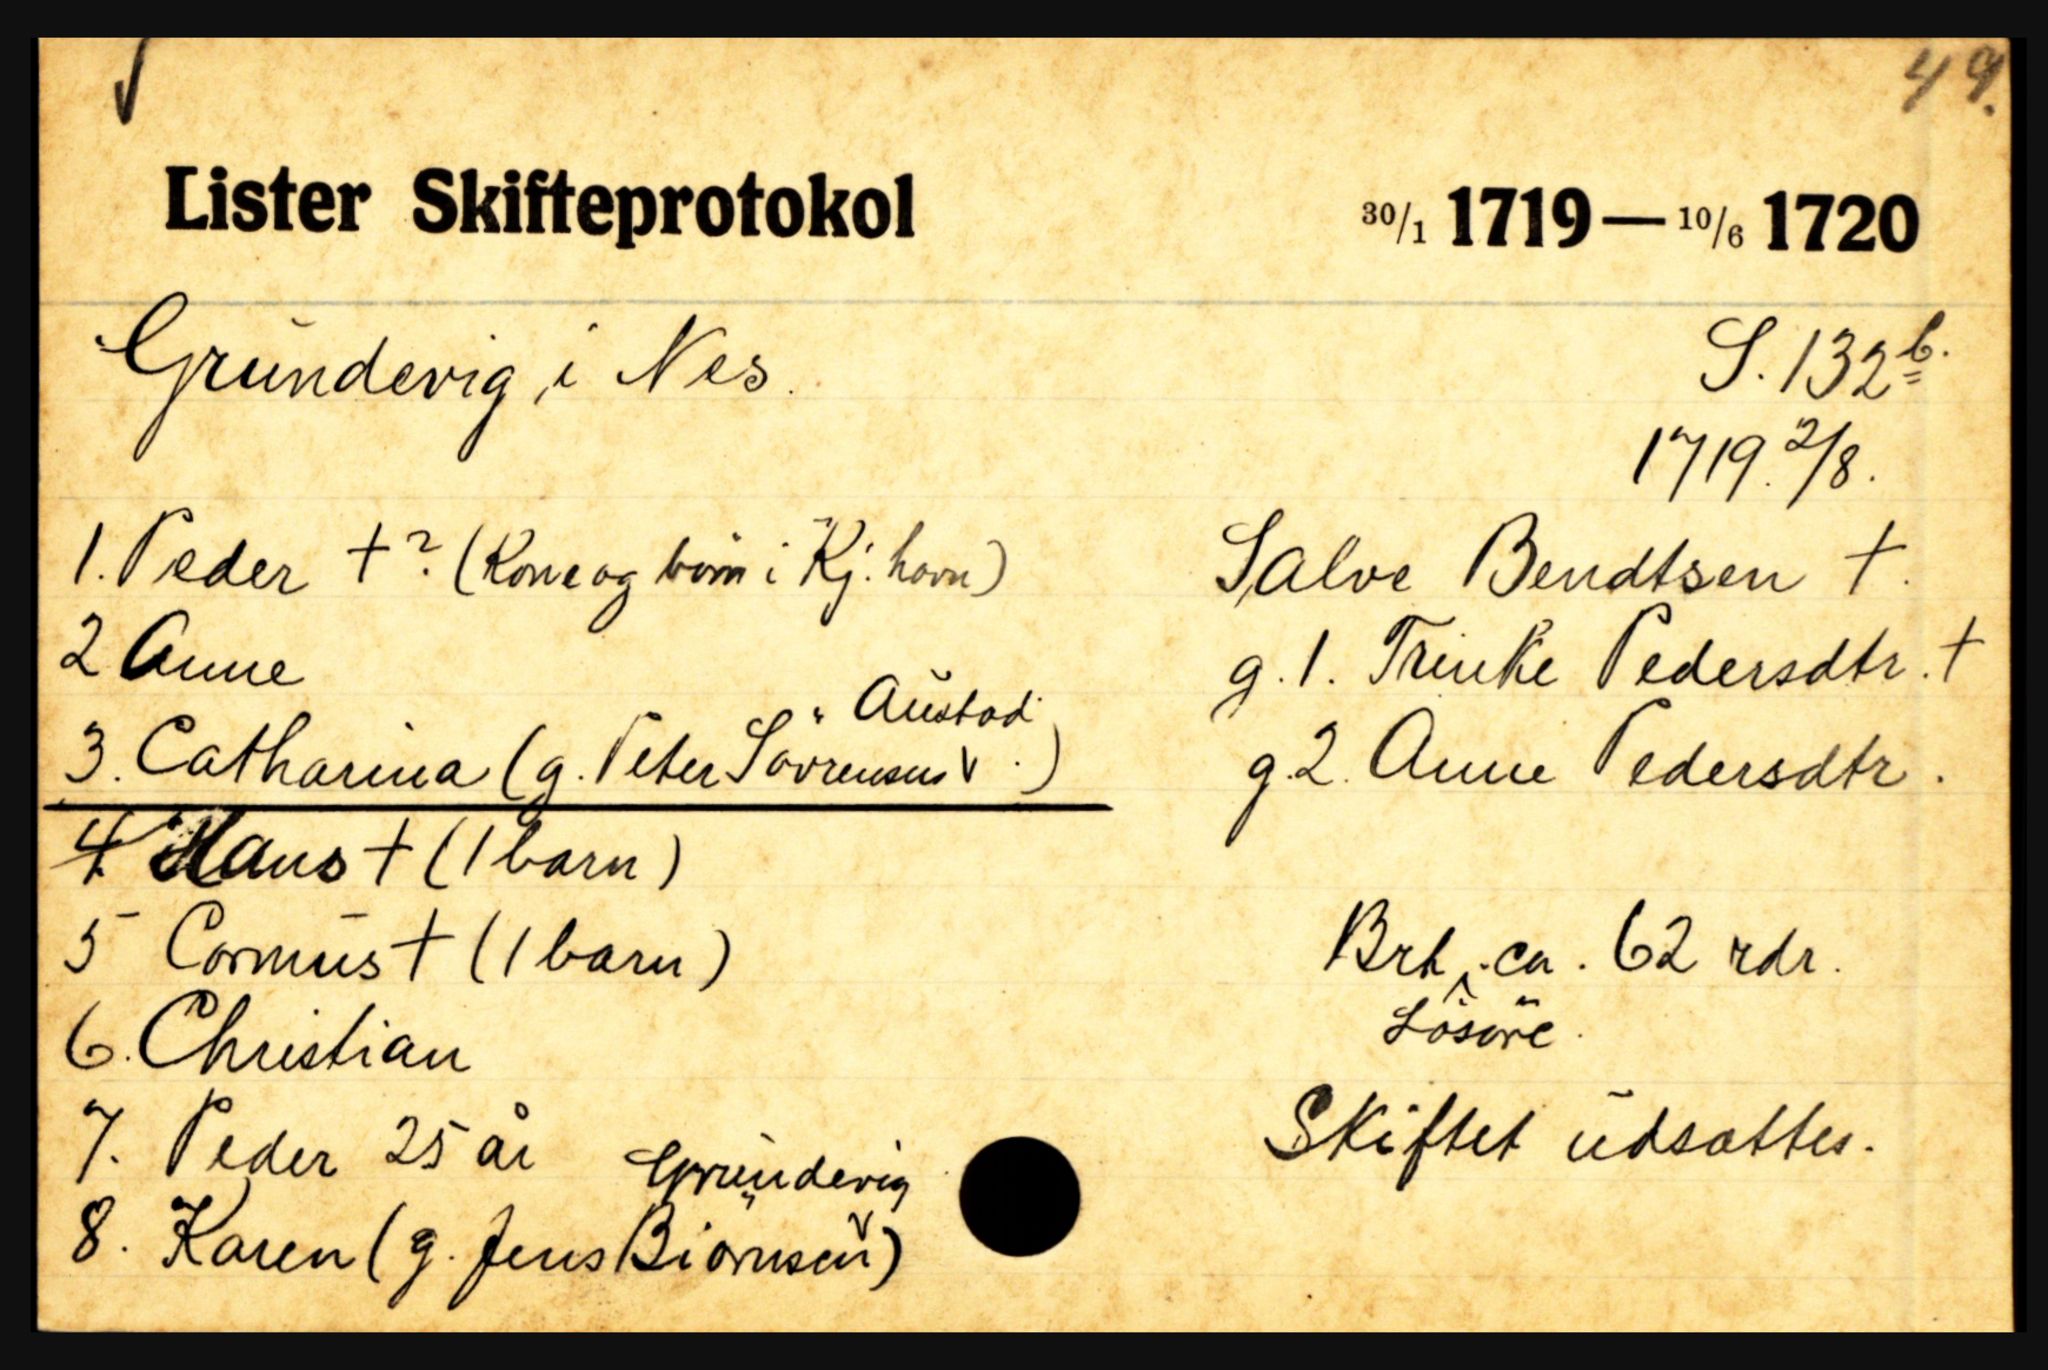 49.
Lister Skifteprotokol 30/1 1719 — 10/6 1720
Grundevig, i Nes.
S. 132 b.
1719. 2/8.
Salve Bendtsen †.
g. 1. Trinke Pedersdtr. †
g. 2. Anne Pedersdtr.
Brt. ca. 62 rdr.
Lösöre.
Skiftet udsattes.
1. Peder †? (Kone og börn i Kj.havn)
2 Anne
3. Catharina (g. Peter Sörensen Austad.)
4 Hans † (1 barn)
5 Cormus † (1 barn)
6. Christian
7. Peder 25 år
8. Karen (g. Jens Biörnsen Grundevig)